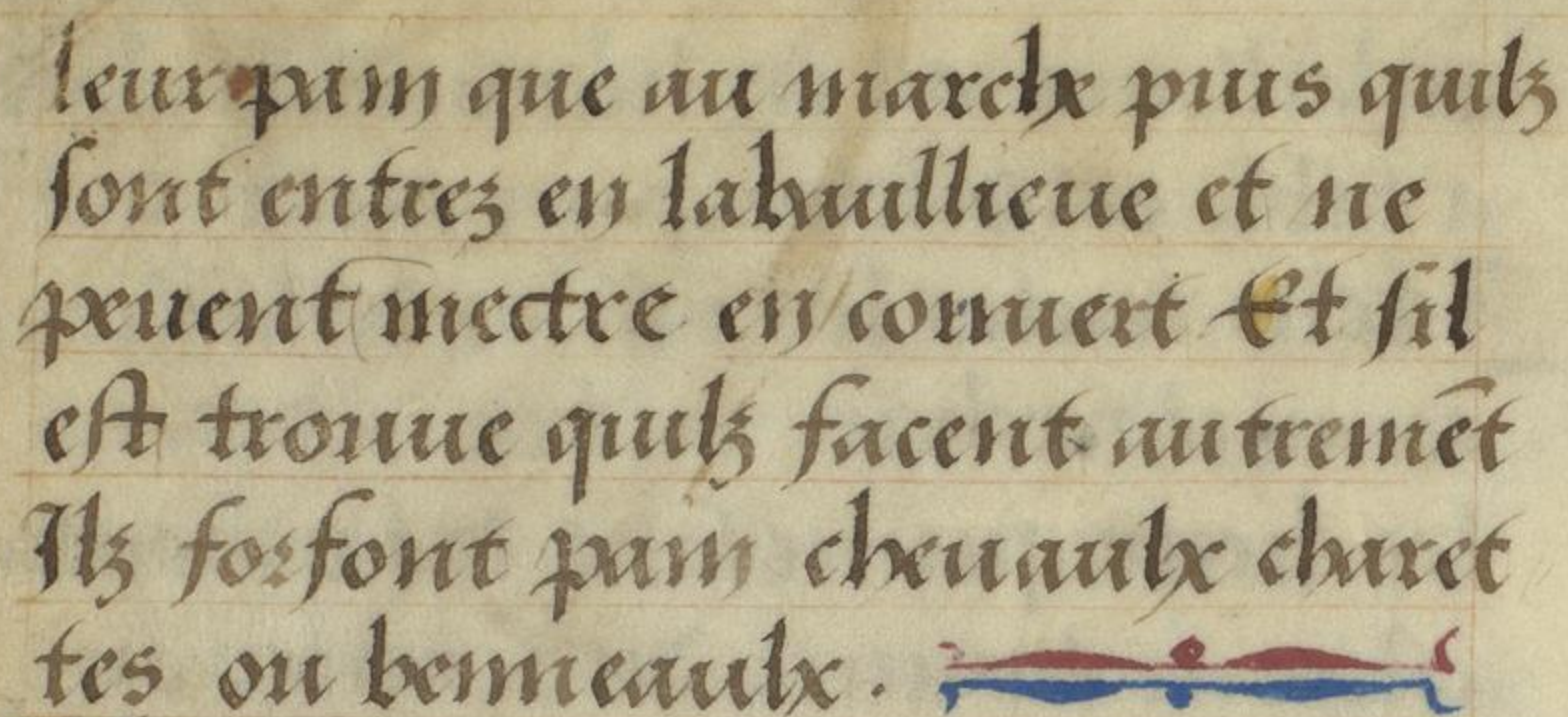 leur pain que au marche puis quilz
sont entrez en labanllieue et ne
peuent mectre en couuert Et sil
est trouue quilz facent autremēt
Ilz forfont pain cheuaulx charet
tes ou benneaulx.